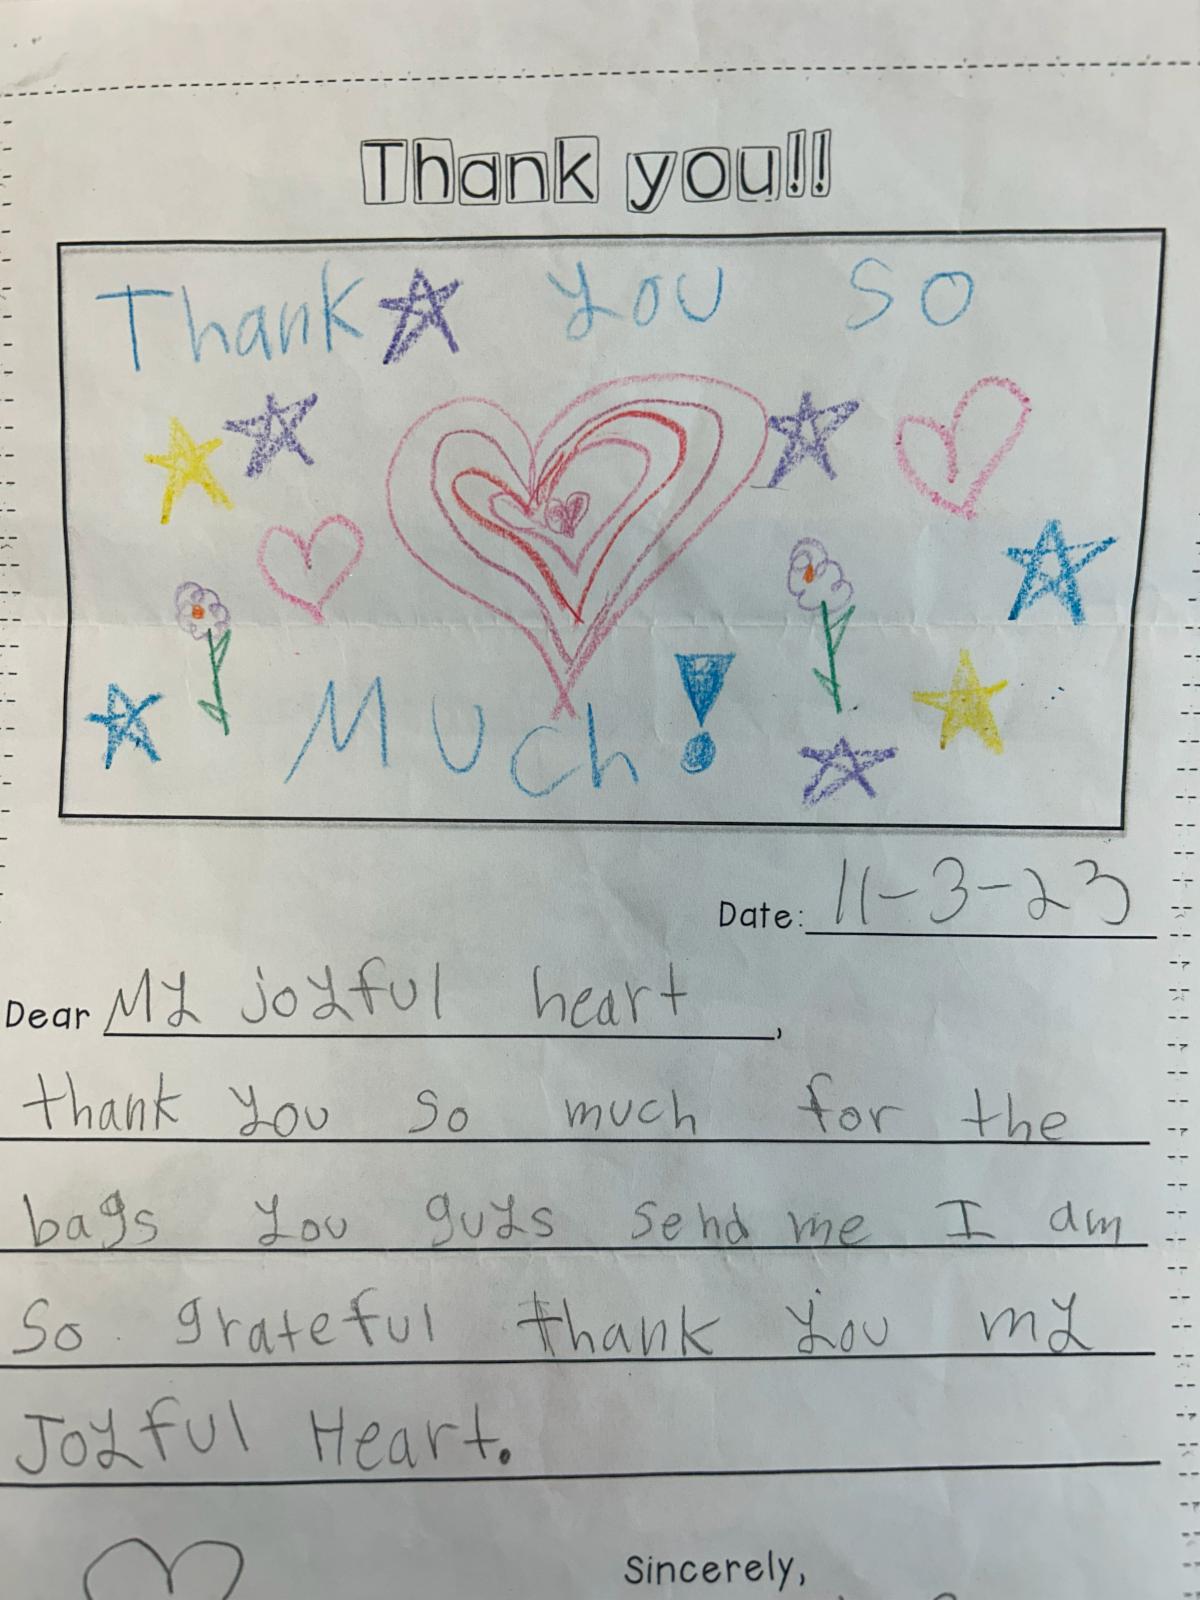 Thank you!!
Thank You So
Much!
Date: 11-3-23
Dear My joyful heart,
thank you so much for the
bags you guys send me I am
So grateful thank you my
Joyful Heart.
Sincerely,